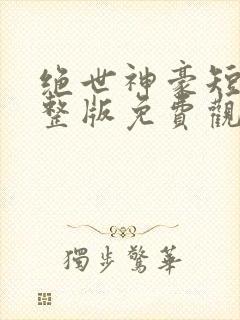 绝世神豪短
整版免費觀
獨步驚華